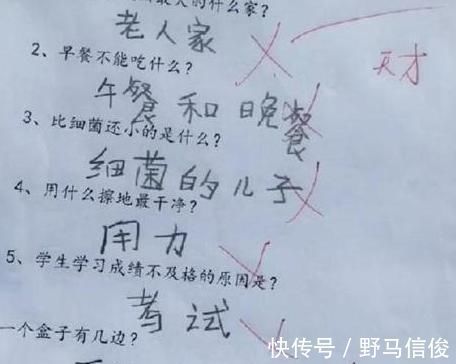 最大的什么家?
老人家
2、早餐不能吃什么?
天才
午餐和晚餐
3、比细菌还小的是什么?
细菌的儿子
4、用什么擦地最干净?
用力
5、学生学习成绩不及格的原因是?
考试
一个盒子有几边?
快传号/野马信俊